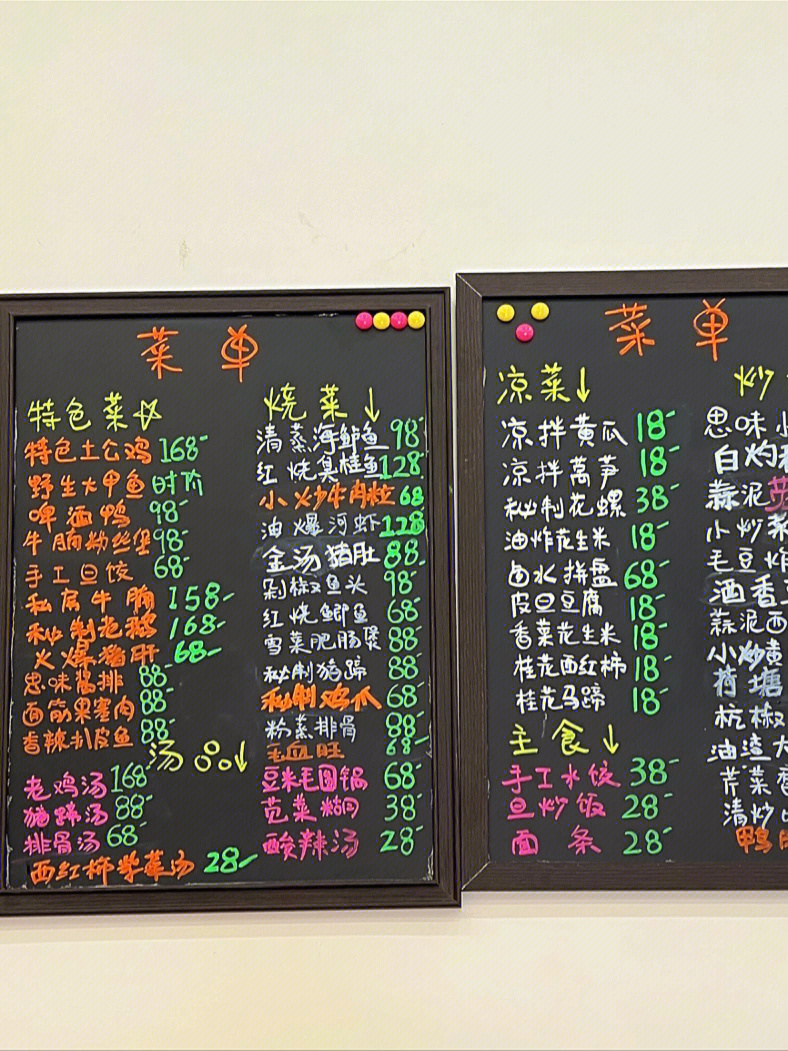 菜单
特色菜☆
特色土公鸡 168-
野生大甲鱼 时价
啤酒鸭 98-
牛腩粉丝煲 98-
手工旦饺 68-
私房牛腩 158-
秘制老鹅 168-
火爆猪肝 68-
思味酱排 88-
面筋果塞肉 88-
香辣扒皮鱼 88-
汤品↓
老鸡汤 168-
猪蹄汤 88-
排骨汤 68-
西红柿紫菜汤 28-
烧菜↓
清蒸海鲈鱼 98-
红烧臭桂鱼 128-
小炒牛肉粒 68
油爆河虾 128
金汤猪肚 88-
剁椒鱼头 98-
红烧鲫鱼 68-
雪菜肥肠煲 88-
秘制猪蹄 88-
秘制鸡爪 68-
粉蒸排骨 88-
毛血旺 68-
豆米毛圆锅 68-
苋菜糊 38-
酸辣汤 28-
菜单
凉菜↓
凉拌黄瓜 18-
凉拌莴笋 18-
秘制花螺 38-
油炸花生米 18-
卤水拼盘 68-
皮旦豆腐 18-
香菜花生米 18-
桂花西红柿 18-
桂花马蹄 18-
主食↓
手工水饺 38-
旦炒饭 28-
面条 28-
炒
思味小
白灼
蒜泥
小炒
毛豆炸
酒香
蒜泥西
小炒黄
荷塘
杭椒
油渣大
芹菜香
清炒
鸭